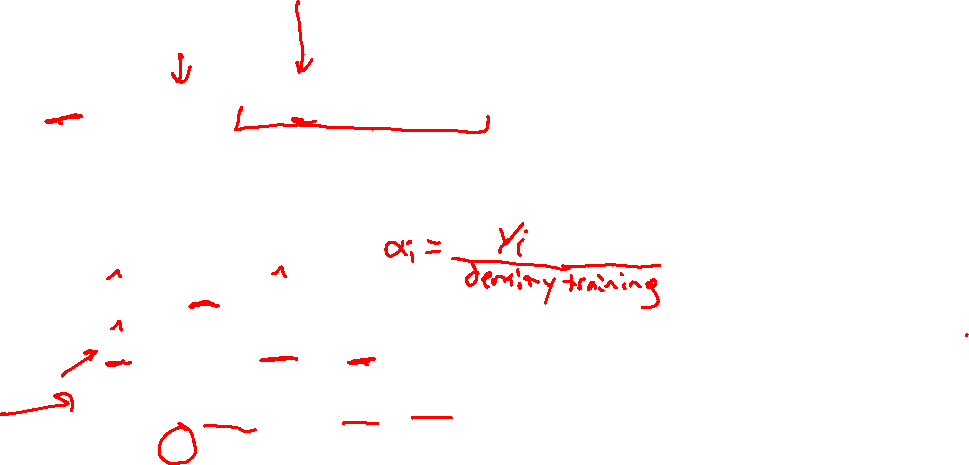 αi = yi
density training